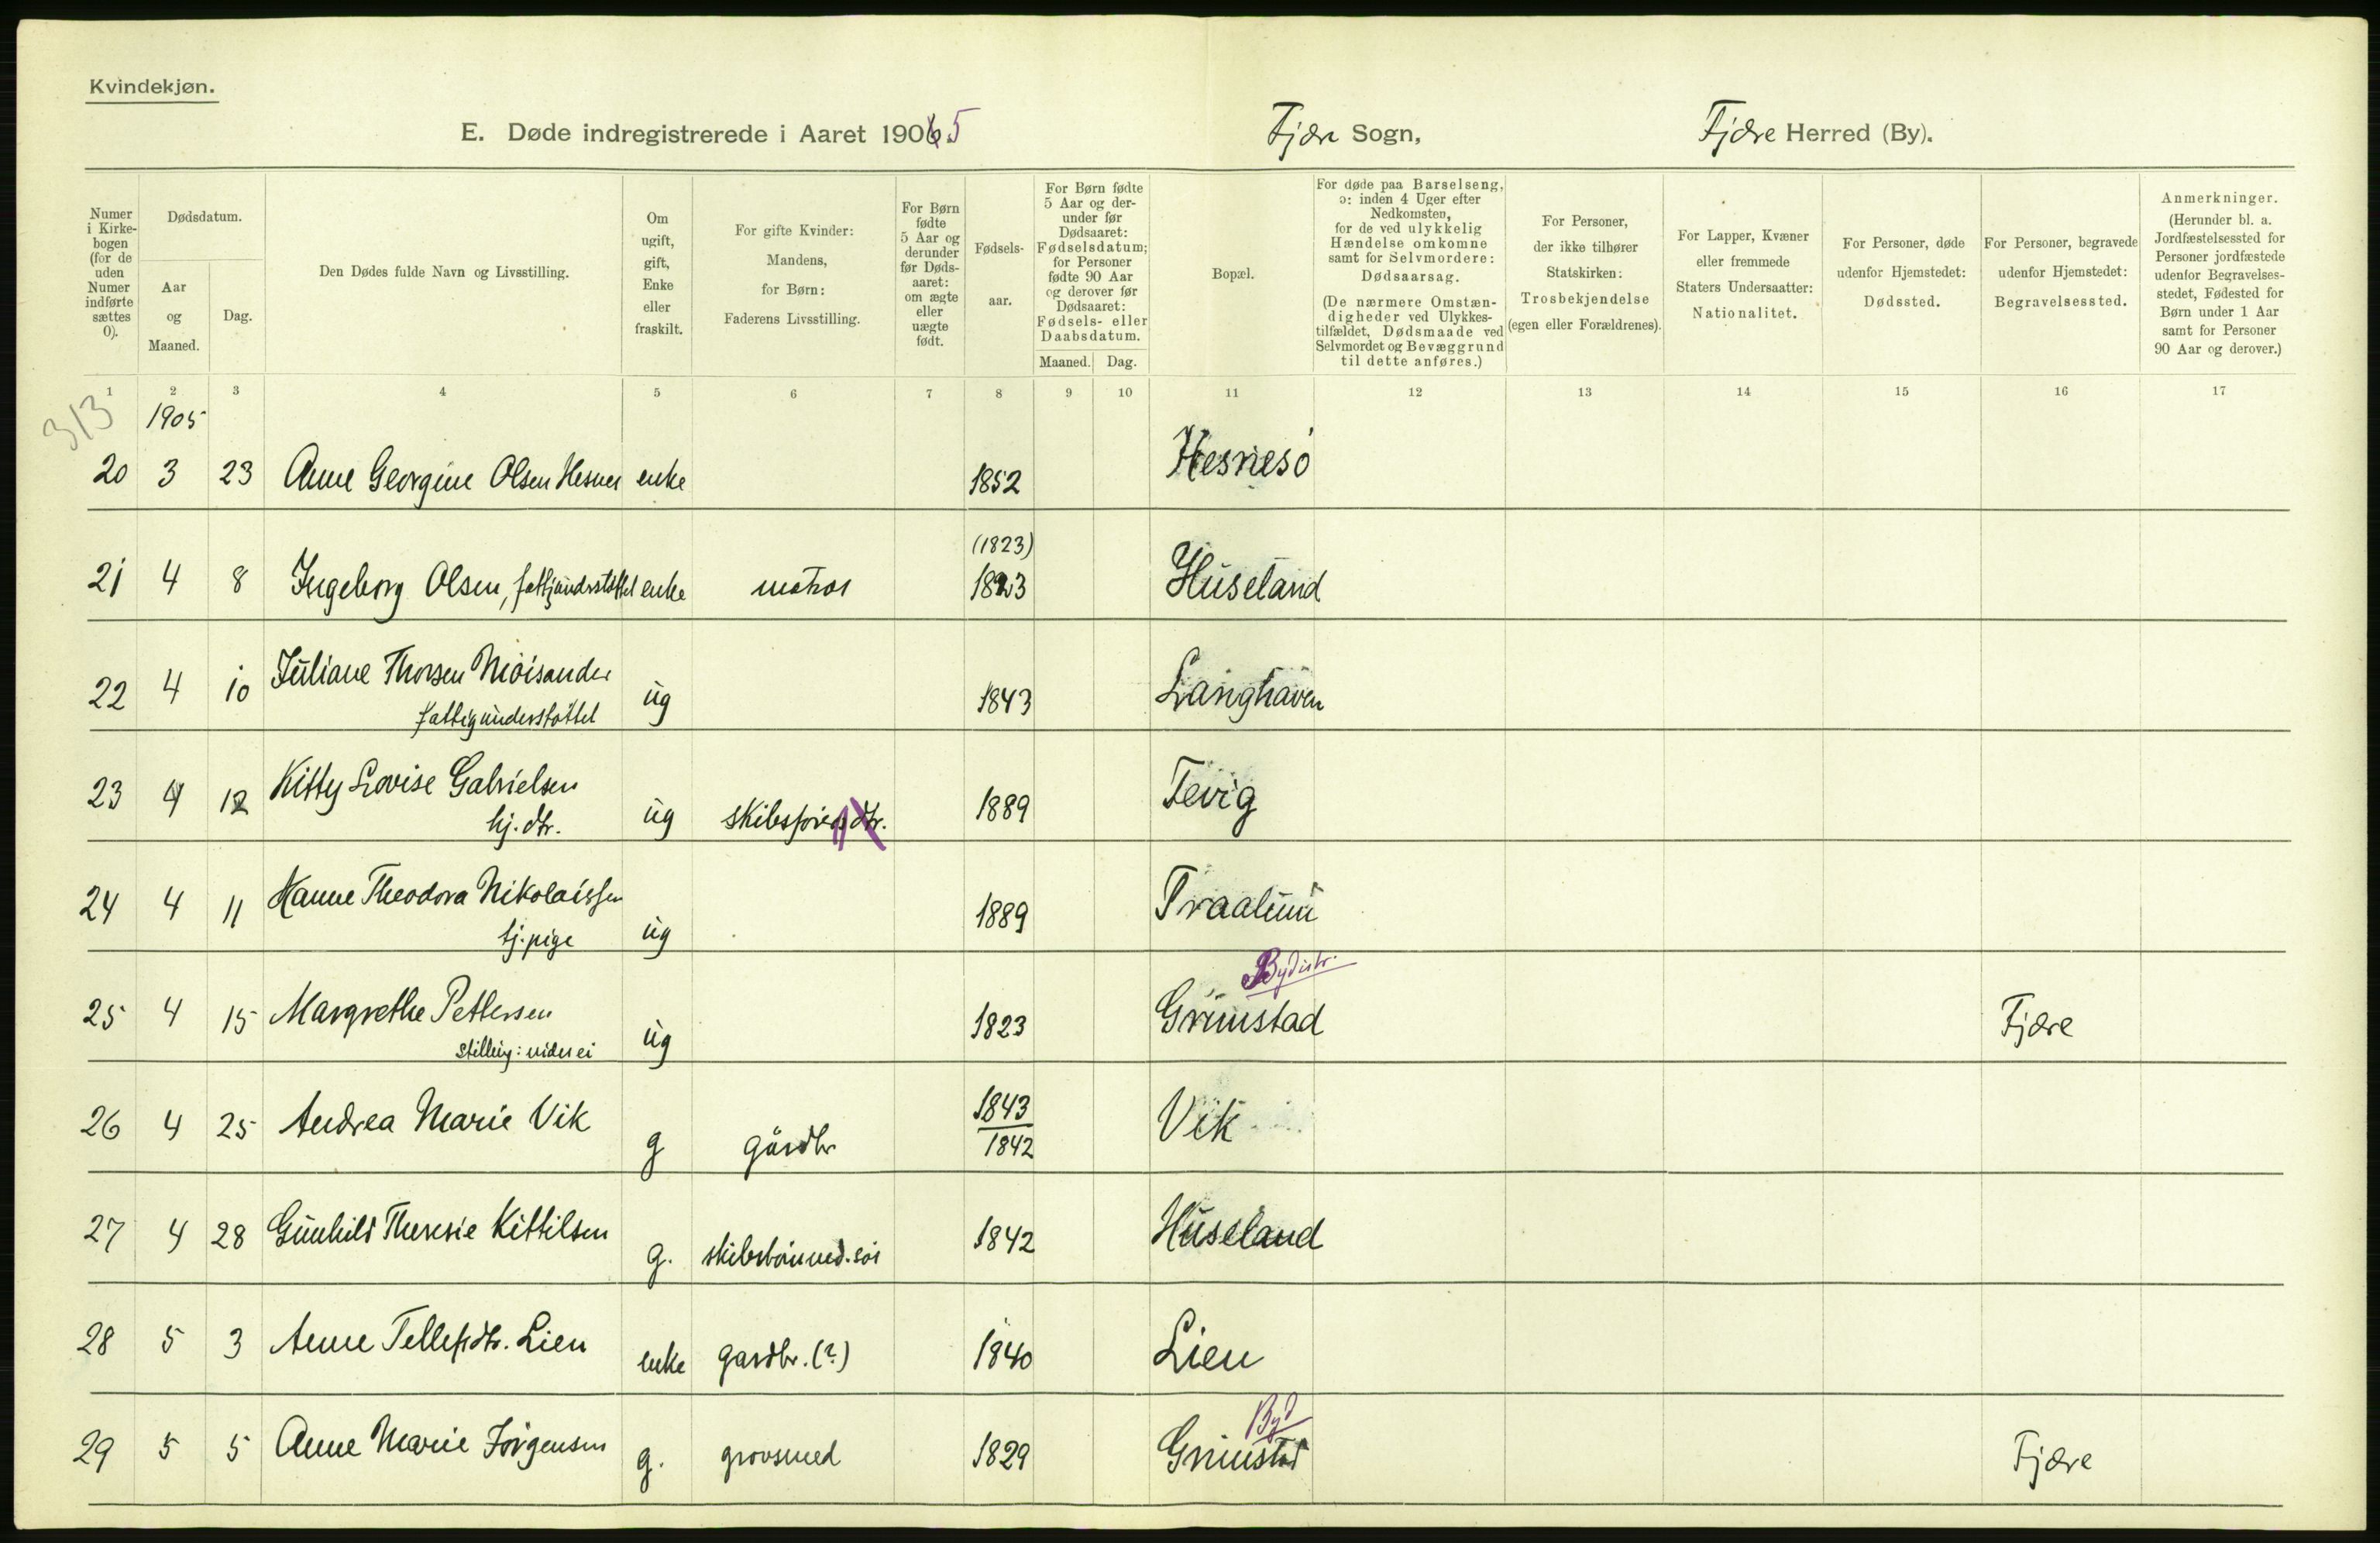 Kvindekjøn.
E. Døde indregistrerede i Aaret 1905
Fjære Sogn,
Fjære Herred (By).
Numer i Kirke-bogen (for de uden Numer indførte sættes 0).
Dødsdatum.
Aar og Maaned.
Dag.
Den Dødes fulde Navn og Livsstilling.
Om ugift, gift, Enke eller fraskilt.
For gifte Kvinder: Mandens, for Børn: Faderens Livsstilling.
For Børn fødte 5 Aar og derunder før Døds-aaret: om ægte eller uægte født.
Fødsels-aar.
For Børn fødte 5 Aar og der-under før Dødsaaret: Fødselsdatum; for Personer fødte 90 Aar og derover før Dødsaaret: Fødsels- eller Daabsdatum.
Maaned. Dag.
Bopæl.
For døde paa Barselseng, ɔ: inden 4 Uger efter Nedkomsten, for de ved ulykkelig Hændelse omkomne samt for Selvmordere: Dødsaarsag.
(De nærmere Omstæn-digheder ved Ulykkes-tilfældet, Dødsmaade ved Selvmordet og Bevæggrund til dette anføres.)
For Personer, der ikke tilhører Statskirken: Trosbekjendelse (egen eller Forældrenes).
For Lapper, Kvæner eller fremmede Staters Undersaatter: Nationalitet.
For Personer, døde udenfor Hjemstedet: Dødssted.
For Personer, begravede udenfor Hjemstedet: Begravelsessted.
Anmerkninger. (Herunder bl. a. Jordfæstelsessted for Personer jordfæstede udenfor Begravelses-stedet, Fødested for Børn under 1 Aar samt for Personer 90 Aar og derover.)
1 2 3 4 5 6 7 8 9 10 11 12 13 14 15 16 17
313
1905
20 3 23 Anne Georgine Olsen Hesnes enke 1852 Hesnesö
(1823)
21 4 8 Ingeborg Olsen, fattigunderstøttet enke matros 1823 Huseland
22 4 10 Juliane Thorsen Moisander ug 1843 Langhaven
fattigunderstøttet
23 4 12 Kitty Lovise Gabrielsen ug skibsförers dtr. 1889 Fevig
hj. dtr.
24 4 11 Hanne Theodora Nikolaissen ug 1889 Traalum
tj. pige
Bydistr.
25 4 15 Margrethe Pettersen ug 1823 Grimstad Fjære
stilling: vides ei
26 4 25 Andrea Marie Vik g gårdbr 1843 Vik
1842
27 4 28 Gunhild Theresie Kittilsen g. skibstömmed. 1842 Huseland
28 5 3 Anne Tellefsdtr. Lien enke gardbr. (?) 1840 Lien
Byd
29 5 5 Anne Marie Jörgensen g. grovsmed 1829 Grimstad Fjære